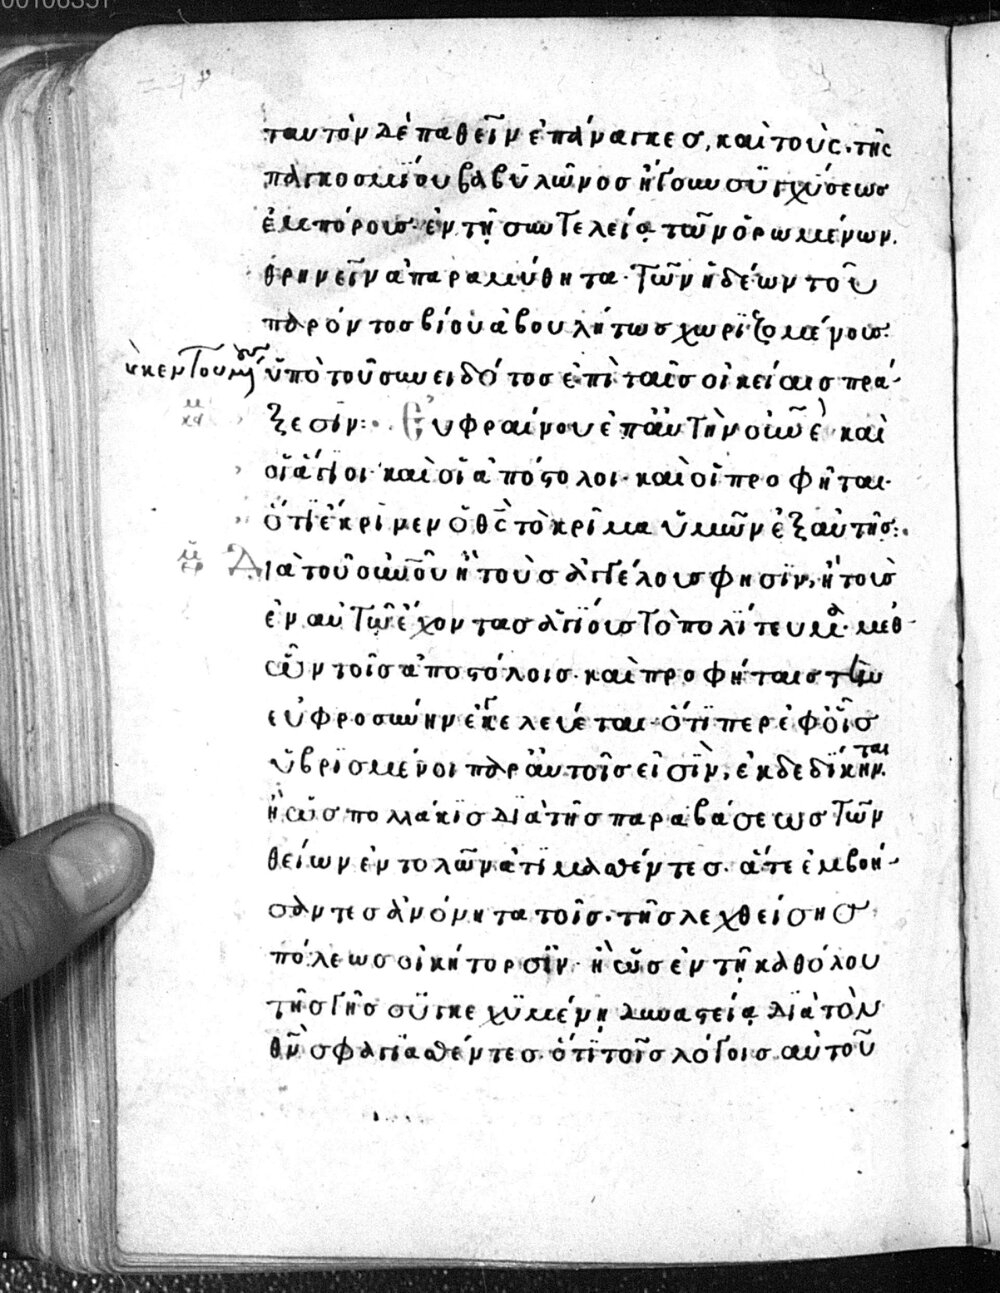 ταυτὸν δὲ παθεῖν ἐπάναγκεσ, καὶ τοὺς τῆς
παγκοσμΐου βαβϋλῶνοσ ἤγουν συγχύσεωσ
ἐμπόρουσ· ἐν τῇ συντελείᾳ τῶν ὁρωμένων.
θρηνεῖν ἀπαραμύθητα· τῶν ἡδέων τοῦ
παρόντοσ βίου ἀβουλήτωσ χωρϊζομένουσ·
ὑπὸ τοῦ συνειδότοσ ἐπὶ ταῖσ οἰκείαισ πρά-
ξεσϊν: Εὐφραίνου ἐπ' αὐτὴν οὐνὲ· καὶ
οἱ ἅγϊοι· καὶ οἱ ἀπόστολοι· καὶ οἱ προφῆται·
ὅτϊ ἔκρϊνεν ὁ θς τὸ κρῖμα ὑμῶν ἐξ αὐτῆσ:
Διὰ τοῦ οὐνοῦ ἢ τοὺσ ἀγγέλουσ φησϊν, ἢ τοὺσ
ἐν αὐτῷ ἔχοντασ ἁγϊουσ τὸ πολΐτευμα· μεθ
ὧν τοῖσ ἀποστόλοισ· καὶ προφήταισ τὴν
εὐφροσύνην ἐκελεύεται· ὅτϊ περ ἐφ' οἷσ
ὑβρϊσμένοι παρ' αὐτοῖσ εἰσϊν, ἐκδεδΐκηνται
ἢ ὡσ πολλάκϊσ δϊὰ τῆσ παραβάσεωσ τῶν
θείων ἐντολῶν ἀτϊμασθέντεσ· ἅτε ἐμβοή-
σαντεσ ἀνόνητα τοῖσ· τῆσ λεχθείσησ
πόλεωσ οἰκήτορσϊν· ἢ ὡσ ἐν τῇ καθόλου
τῆσ γῆσ συγκεχϋμένῃ δυναστείᾳ δϊὰ τὸν
θν σφαγϊασθέντεσ· ὅτϊ τοῖσ λόγοισ αὐτοῦ